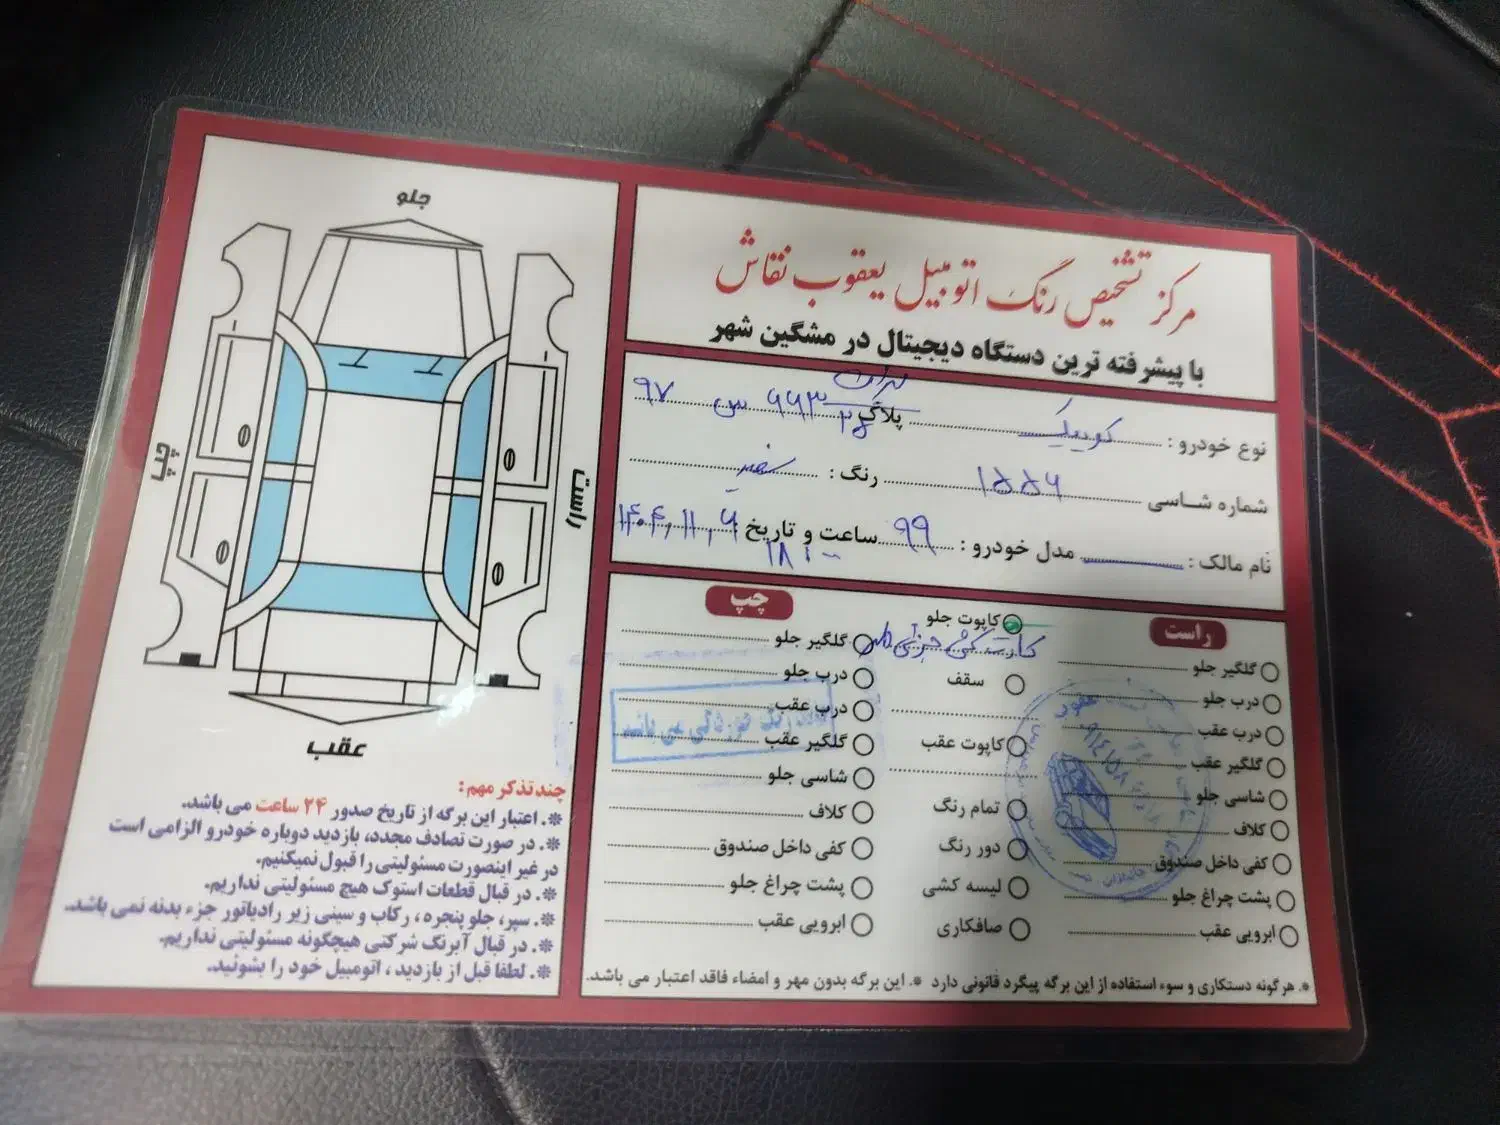 مرکز تشخیص رنگ اتومبیل یعقوب نقاش
با پیشرفته ترین دستگاه دیجیتال در مشگین شهر
نوع خودرو : کوییک پلاک ۶۶۳ س ۹۷
شماره شاسی ۱۵۵۶ رنگ : سفید
نام مالک : مدل خودرو : ۹۹ ساعت و تاریخ : ۱۴۰۴,۱۱,۶
۱۸:۰۰
راست
گلگیر جلو
درب جلو
درب عقب
گلگیر عقب
شاسی جلو
کلاف
کفی داخل صندوق
پشت چراغ جلو
ابرویی عقب
کاپوت جلو
سقف
کاپوت عقب
تمام رنگ
دور رنگ
لیسه کشی
صافکاری
چپ
گلگیر جلو
درب جلو
درب عقب
گلگیر عقب
شاسی جلو
کلاف
کفی داخل صندوق
پشت چراغ جلو
ابرویی عقب
*. هرگونه دستکاری و سوء استفاده از این برگه پیگرد قانونی دارد *. این برگه بدون مهر و امضاء فاقد اعتبار می باشد.
جلو
چپ
راست
عقب
چند تذکر مهم :
*. اعتبار این برگه از تاریخ صدور ۲۴ ساعت می باشد.
*. در صورت تصادف مجدد، بازدید دوباره خودرو الزامی است
در غیر اینصورت مسئولیتی را قبول نمیکنیم.
*. در قبال قطعات استوک هیچ مسئولیتی نداریم.
*. سپر، جلو پنجره ، رکاب و سینی زیر رادیاتور جزء بدنه نمی باشد.
*. در قبال آبرنگ شرکتی هیچگونه مسئولیتی نداریم.
*. لطفا قبل از بازدید ، اتومبیل خود را بشوئید.